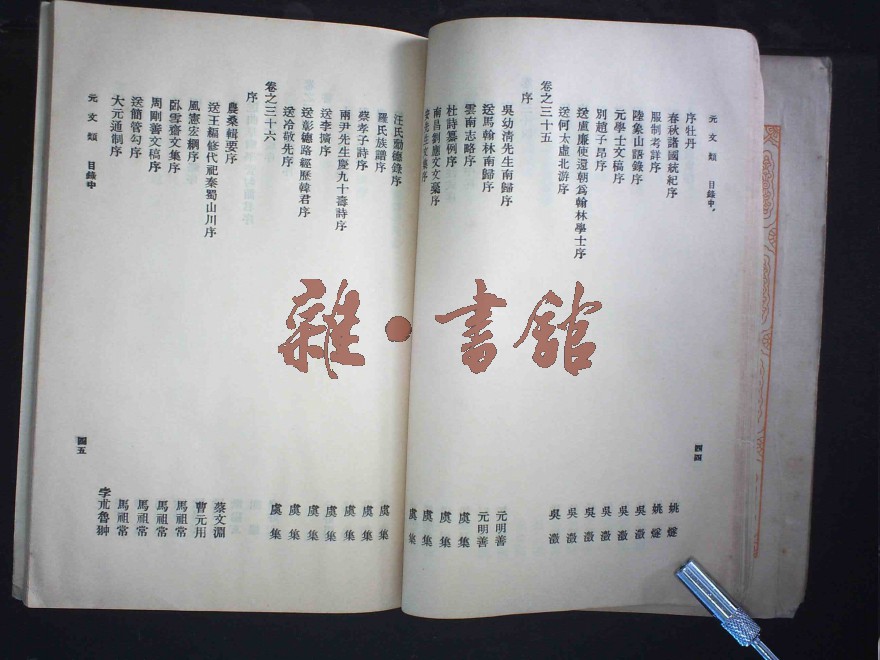 元文類 目錄中
序牡丹 姚燧
春秋諸國統紀序 姚燧
服制考詳序 吳澂
陸象山語錄序 吳澂
元學士文稿序 吳澂
別趙子昂序 吳澂
送盧廉使還朝爲翰林學士序 吳澂
送何太虛北游序 吳澂
卷之三十五
序
吳幼清先生南歸序 元明善
送馬翰林南歸序 元明善
雲南志略序 虞集
杜詩纂例序 虞集
南昌劉應文文藁序 虞集
先生文集序 虞集
四四
雜·書館
汪氏勳德錄序 虞集
羅氏族譜序 虞集
蔡孝子詩序 虞集
兩尹先生慶九十壽詩序 虞集
送李擴序 虞集
送彰德路經歷韓君序 虞集
送冷敬先序 虞集
卷之三十六
序
農桑輯要序 蔡文淵
送王編修代祀秦蜀山川序 曹元用
風憲宏綱序 馬祖常
臥雪齋文集序 馬祖常
周剛善文稿序 馬祖常
送簡管勾序 馬祖常
大元通制序 孛朮魯翀
元文類 目錄中
四五